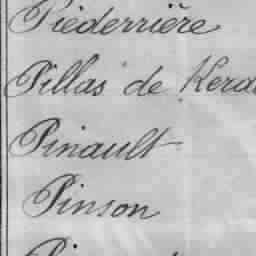 Piederrière
Pillas de
Pinault
Pinson